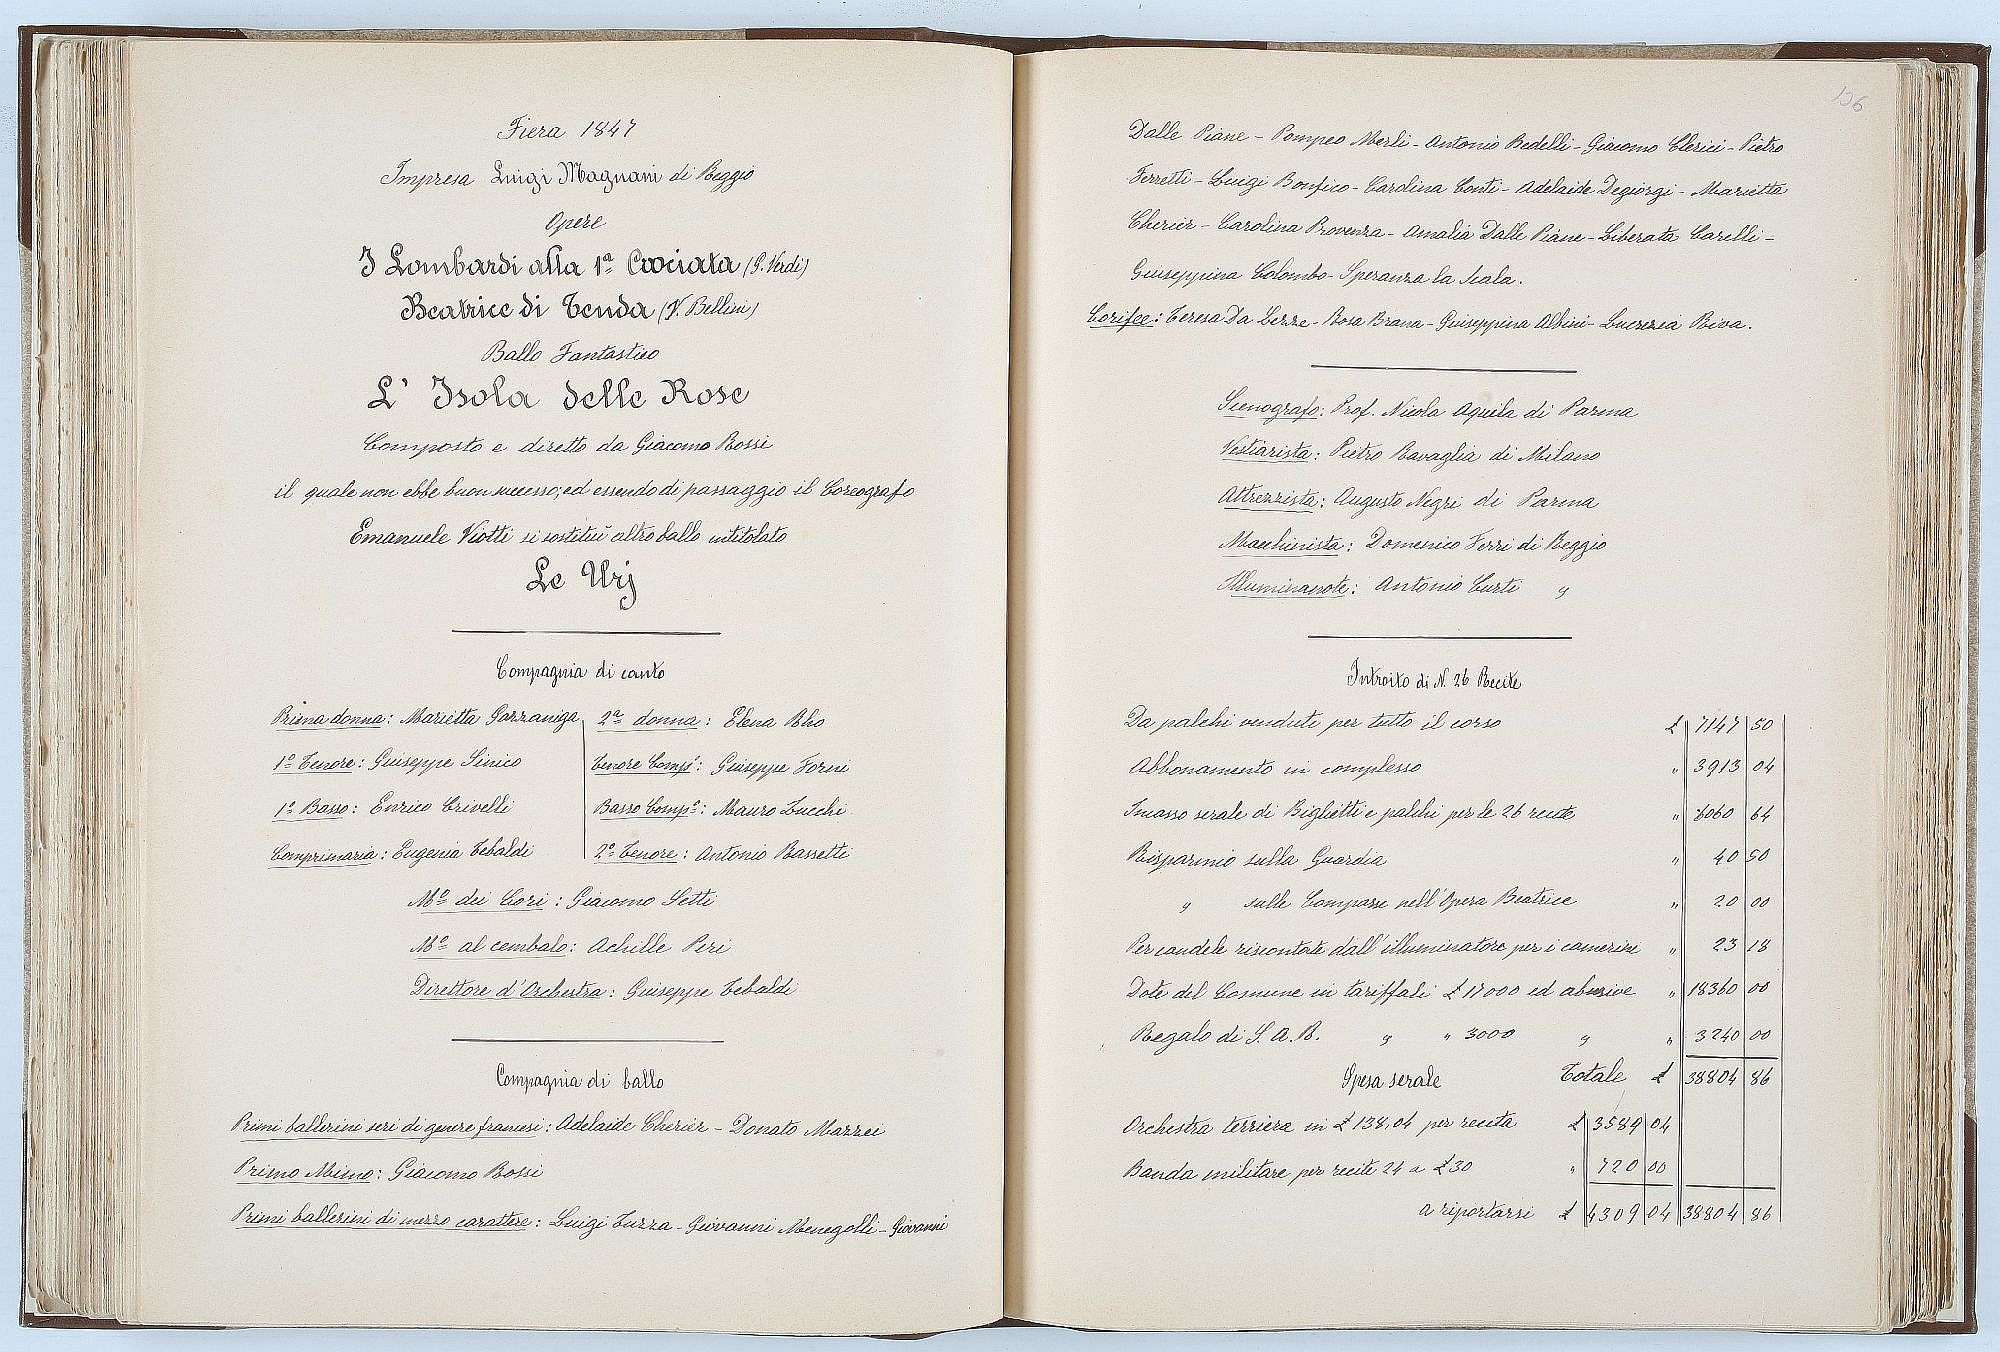 Fiera 1847
Impresa Luigi Magnani di Reggio
Opere
I Lombardi alla 1ª Crociata (G. Verdi)
Beatrice di Tenda (V. Bellini)
Ballo Fantastico
L' Isola delle Rose
Composto e diretto da Giacomo Rossi
il quale non ebbe buon successo; ed essendo di passaggio il Coreografo
Emanuele Viotti si sostituì altro ballo intitolato
Le Urj
Compagnia di canto
Prima donna: Marietta Gazzaniga
2ª donna: Elena Rho
1º Tenore: Giuseppe Sinico
Tenore Compº: Giuseppe Forni
1º Basso: Enrico Crivelli
Basso Compº: Mauro Zucchi
Comprimaria: Eugenia Tebaldi
2º Tenore: Antonio Bassetti
Mº dei Cori: Giacomo Setti
Mº al cembalo: Achille Peri
Direttore d'Orchestra: Giuseppe Tebaldi
Compagnia di ballo
Primi ballerini seri di genere francesi: Adelaide Cherier - Donato Mazzei
Primo Mimo: Giacomo Rossi
Primi ballerini di mezzo carattere: Luigi Zuzza - Giovanni Menegolli - Giovanni
196
Dalle Piane - Pompeo Merli - Antonio Bedelli - Giacomo Clerici - Pietro
Ferretti - Luigi Bonfico - Carolina Conti - Adelaide Degiorgi - Marietta
Cherier - Carolina Provenza - Amalia Dalle Piane - Liberata Carelli -
Giuseppina Colombo - Speranza la Scala.
Corifee: Teresa Da Lezze - Rosa Brana - Giuseppina Albini - Lucrezia Riva.
Scenografo: Prof. Nicola Aquila di Parma
Vestiarista: Pietro Ravaglia di Milano
Attrezzista: Augusto Negri di Parma
Macchinista: Domenico Ferri di Reggio
Illuminarote: Antonio Curti "
Introito di N. 26 Recite
Da palchi venduti per tutto il corso £ 7147 50
Abbonamento in complesso " 3913 04
Incasso serale di Biglietti e palchi per le 26 recite " 6060 64
Risparmio sulla Guardia " 40 50
" sulle Comparse nell'Opera Beatrice " 20 00
Per candele riscontate dall'illuminatore per i camerini " 23 18
Dote del Comune in tariffali £ 17000 ed abusive " 18360 00
Regalo di S. A. R. " " 3000 " " 3240 00
Spesa serale Totale £ 38804 86
Orchestra terriera in £ 138,04 per recita £ 3589 04
Banda militare per recite 24 a £ 30 " 720 00
a riportarsi £ 4309 04 38804 86